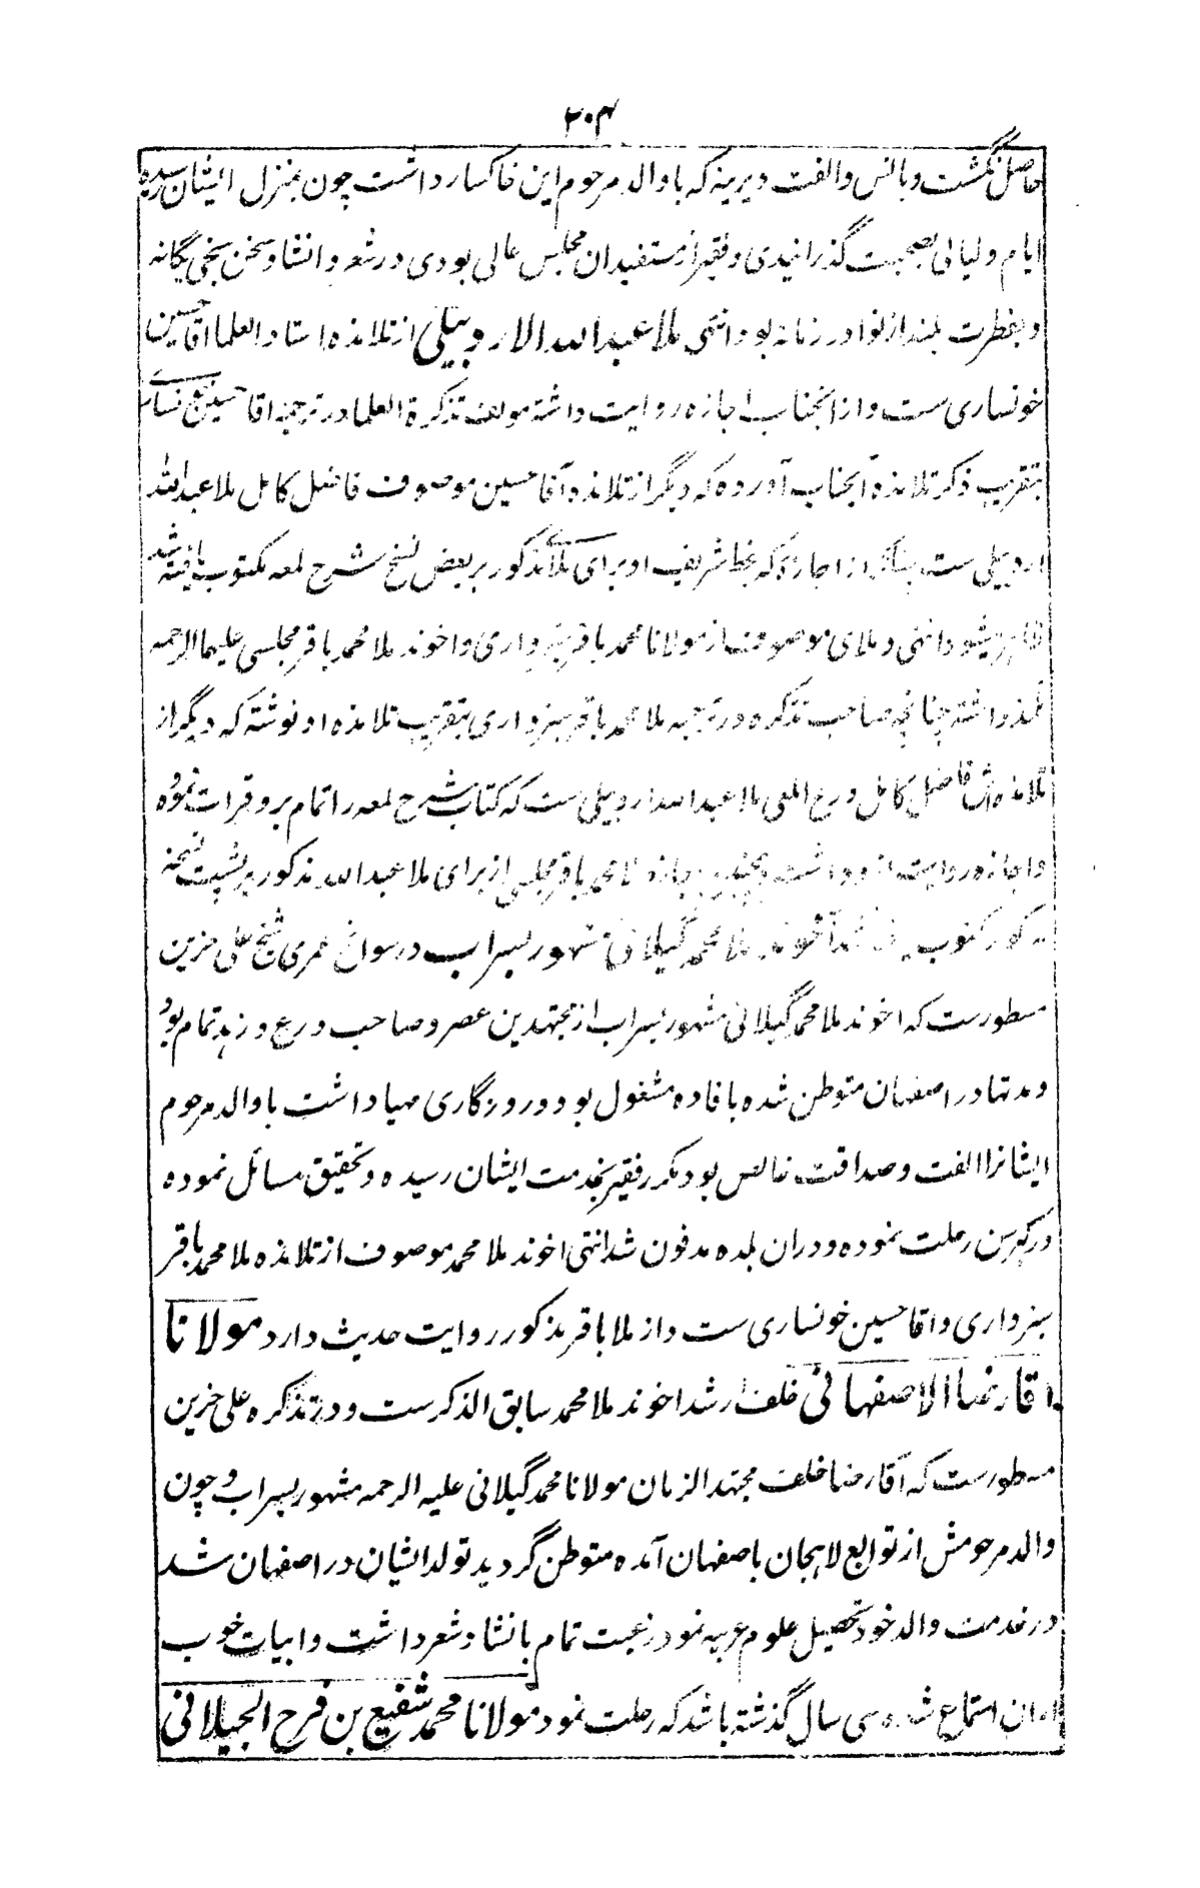 ۲۰۴
حاصل نگشت و بانس والفت دیرینه که با والد مرحوم این خاکسار داشت چون بمنزل ایشان رسیده
ایام و لیالی بصحبت گذرانیدی و فقیر از مستفیدان مجلس عالی بودی در شعر و انشا و سخن سنجی یگانه
و بفطرت بلند از نوادر زمانه بود انتهی ملا عبد الله الاردبیلی از تلامذه استاد العلما اقا حسین
خونساری ست و از انجناب اجازه روایت داشته مولف تذکرة العلما در ترجمه اقا حسین خونساری
بتقریب ذکر تلامذه آنجناب آورده که دیگر از تلامذه آقا حسین موصوف فاضل کامل ملا عبد الله
اردبیلی ست چنانکه از اجازۀ که بخط شریف او برای ملای مذکور بر بعض نسخ شرح لمعه مکتوب یافته شد
ظاهر میشود انتهی و ملای موصوف از مولانا محمد باقر سبزواری و اخوند ملا محمد باقر مجلسی علیهما الرحمه
تلمذ داشته چنانچه صاحب تذکره در ترجمه ملا محمد باقر سبزواری بتقریب تلامذه او نوشته که دیگر از
تلامذه اش فاضل کامل ورع المعی ملا عبد الله اردبیلی ست که کتاب شرح لمعه را تمام بر و قرات نموده
و اجازه روایت از و داشت و همچنین اجازه ملا محمد باقر مجلسی از برای ملا عبد الله مذکور بر پشت نسخه
مذکور مکتوب یافته شد آخوند ملا محمد گیلانی مشهور بسراب در سوانح عمری شیخ علی حزین
مسطورست که اخوند ملا محمد گیلانی مشهور بسراب از مجتهدین عصر و صاحب ورع و زهد تمام بود
و مدتها در اصفهان متوطن شده بافاده مشغول بود و روزگاری مهیا داشت با والد مرحوم
ایشانرا الفت و صداقت خالص بود مکرر فقیر بخدمت ایشان رسیده و تحقیق مسائل نموده
در کبر سن رحلت نموده و دران بلده مدفون شد انتهی اخوند ملا محمد موصوف از تلامذه ملا محمد باقر
سبزواری و اقا حسین خونساری ست و از ملا باقر مذکور روایت حدیث دارد مولانا
اقا رضا الاصفهانی خلف ارشد اخوند ملا محمد سابق الذکر ست و در تذکره علی حزین
مسطورست که آقا رضا خلف مجتهد الزمان مولانا محمد گیلانی علیه الرحمه مشهور بسراب و چون
والد مرحومش از توابع لاهیجان باصفهان آمده متوطن گردید تولد ایشان در اصفهان شد
در خدمت والد خود تحصیل علوم عربیه نمود رغبت تمام بانشاد شعر داشت و ابیات خوب
ازان استماع شده سی سال گذشته باشد که رحلت نمود مولانا محمد شفیع بن فرح الجیلانی